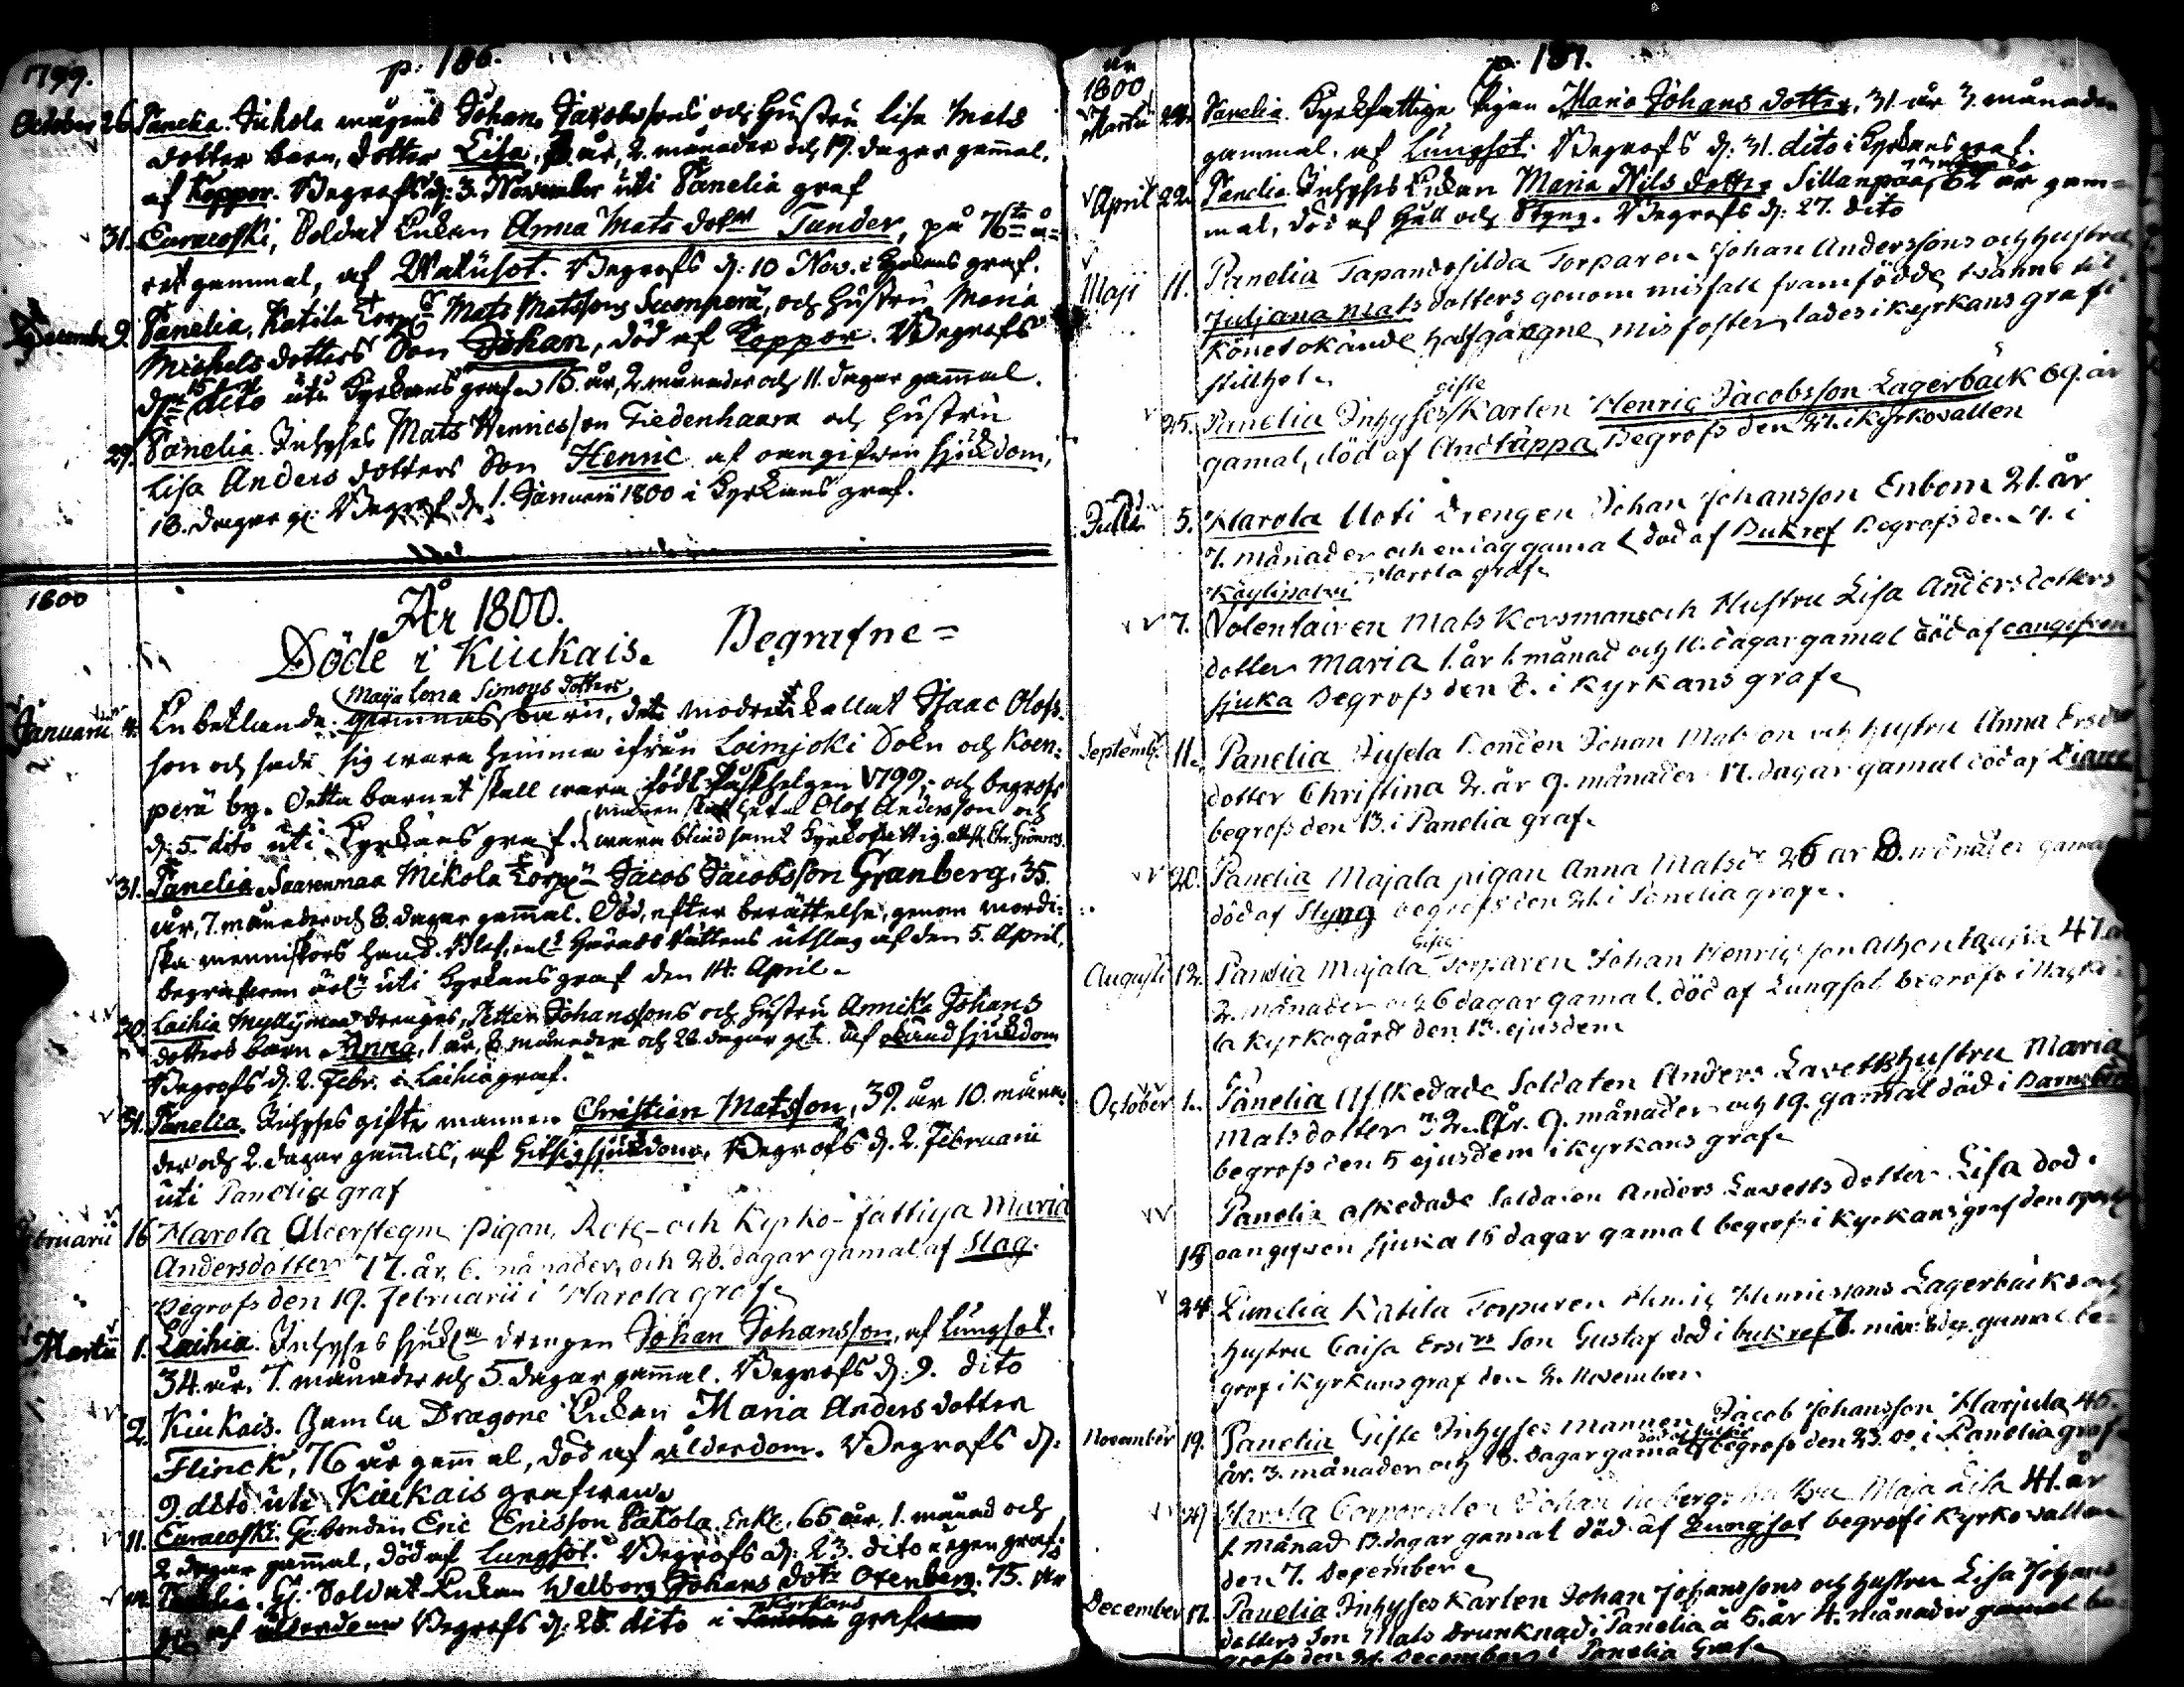 1799.
p. 186.
October 26 Panelia. Juhola mågens Johan Jacobssons och Hustru Lisa Mats
dotter barn, dotter Lisa, år, 2. månader och 19. dagar gammal,
af Koppor. Begrofs d: 3. November uti Panelia graf
31. Euracoski, Soldat Enkan Anna Mats dotr Tander, på 76te å-
ret gammal, af Watusot. Begrofs d: 10 Nov. i Kyrkans graf.
December 9. Panelia, Katila Torpn Mats Matssons Seccenperä, och Hustru Maria
Michels dotters Son Johan, död af Koppor. Begrofs
dn 15 dito uti Kyrkans graf 15. år, 2. månader och 11. dagar gammal.
29. Panelia. Inhyses Mats Henricsson Tiedenhaara och Hustru
Lisa Anders dotters Son Henric af oangifven sjukdom,
18. dagar gl. Begrofs d. 1. Januarii 1800 i Kyrkans graf.
1800
År 1800.
Döde i Kiukais. Begrafne =
Maija Lena Simons dotters
Januarii 4. En betlande qvinnas barn, dete modren kallat Isaac Olofs-
son och sade sig wara hemma ifrån Loimjoki Sokn och Koen-
perä by. Detta barnet skall wara födt Påskhelgen 1799, och begrofs
mannen skall heta Olof Anderson och
d: 5. dito uti Kyrkans graf. wara blind samt Kyrkofattig
31. Panelia. Saarenmaa Mikola Torpn Jacob Jacobsson Granberg, 35.
år, 7. månader och 8. dagar gammal. Död, efter berättelse, genom mordi-
ska menniskors hand. Blef, enlt Härads Rättens utslag af den 5. April,
begrafven uti Kyrkans graf den 14. April.
30. Laihia Myllymaa drengens, Petter Johanssons och Hustru Annika Johans
dotters barn Anna, 1. år, 8. månader och 28. dagar af sjukdom
Begrofs d. 2. Febr. i Laihia graf.
31. Panelia. Inhyses gifte mannen Christian Matsson, 39. år 10. måna-
der och 2. dagar gammal, af Hitsig sjukdom. Begrofs d. 2. Februarii
uti Panelia graf
Februarii 16 Harola pigan, Rote- och Kyrko-fattiga Maria
Andersdotter 77. år, 6. månader, och 28. dagar gamal af Slag.
Begrofs den 19. Februarii i Harola graf
Martii 1. Laihia. Inhyses drengen Johan Johansson, af Lungsot.
34. år, 7. månader och 5. dagar gammal. Begrofs d: 9. dito
2. Kiukais. Gamla Dragone Enkan Maria Anders dotter
Flinck, 76 år gammal, död af ålderdom. Begrofs d:
9 dito uti Kiukais grafwen
11. Euracoski. Gl. bonden Eric Ericsson Pakola Enkl. 65 år, 1. månad och
2 dagar gammal, död af Lungsot. Begrofs d: 23. dito i egen graf.
Panelia. Gl. Soldat Enkan Walborg Johans dotr Oxenberg. 75. år
af ålderdom Begrofs d: 25. dito i Kyrkans graf
år
1800
p. 187.
Martii 22. Panelia. Kyrkfattige Pigan Maria Johans dotter, 31. år 3. månader
gammal. af Lungsot. Begrofs d: 31. dito i Kyrkans graf.
April 22. Panelia Inhyses Enkan Maria Nils dotter Sillanpää, 62 år gam-
mal, död af Håll och Styng. Begrofs d: 27. dito
Maji 11. Panelia Tapanosilda Torparen Johan Anderssons och Hustru
Juljana Mats dotters genom misfall framfödde twänne til
könet okände halfgångne misfoster, lades i Kyrkans graf i
stillhet.
gifte
25. Panelia Inhyses Karlen Henric Jacobsson Lagerbäck 69. år
gamal, död af Andtäppa Begrofs den 27. i Kyrkovallen
Julii 5. Harola Uoti Drengen Johan Johansson Enbom 21. år
7. månader och en dag gamal död af Bukref Begrofs den 7. i
Harola graf
Köylisalwi
7. Volentairen Mats Korsmans och Hustru Lisa Andersdotters
dotter Maria 1. år 1. månad och 11. dagar gamal död af oangifven
sjuka Begrofs den 8. i Kyrkans graf
Septembr 11. Panelia Jusela Bonden Johan Matsson och hustru Anna Ersdr
dotter Christina 2. år 9. månader 17. dagar gamal död af
begrofs den 13. i Panelia graf.
20. Panelia Majala pigan Anna Matsdr 26 år 8. månader gamal
död af Styng begrofs den 21. i Panelia graf.
Gifte
Augusti 12. Panelia Majala Torparen Johan Henricsson 47. år
2. månader och 6 dagar gamal. död af Lungsot begrofs i
la Kyrkogård den 13. ejusdem
October 1. Panelia Afskedade Soldaten Anders Lavetts Hustru Maria
Matsdotter 32. År. 9. månader och 19. gamal död i Barnsbörd
begrofs den 5 ejusdem i Kyrkans graf
Panelia afskedade Soldaten Anders Lavetts dotter Lisa död.
15 oangifven sjuka 16 dagar gamal begrofs i Kyrkans graf den 19
24. Panelia Katila Torparen Henric Henricssons Lagerbäcks och
hustru Caisa Ersdrs Son Gustaf död i bukref 7. mån: gamal be-
grof i Kyrkans graf den 2. November
November 19. Panelia Gifte Inhyses mannen Jacob Johansson Harjula 45.
år. 3. månader och 18. dagar gamal begrofs den 23. i Panelia graf
29 Harola Corporalen Johan hustru Maja Lisa 41. år
1. månad 13. dagar gamal död af Lungsot begrof i Kyrkovallen
den 7. December
December 17. Panelia Inhyses Karlen Johan Johanssons och hustru Lisa Johans
dotters Son Mats Drunknad i Panelia å 6. år 4. månader gamal be-
grofs den 21. December i Panelia Graf